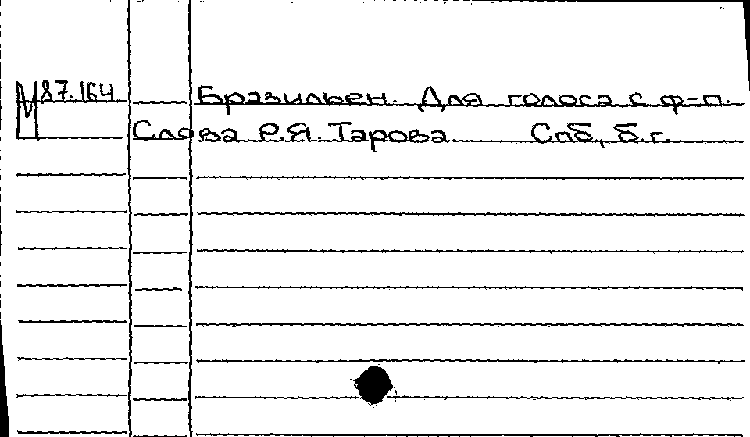 М 87.164 Бразильен. Для голоса с ф-п.
Слова Р.Я. Тарова Спб, б.г.